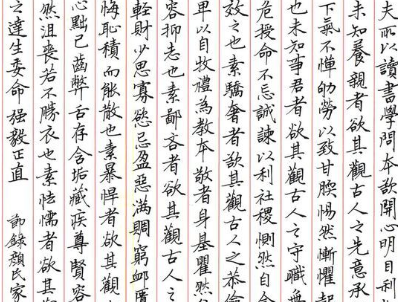 夫所以讀書學問本欲開心明目利
未知養親者欲其觀古人之先意承
下氣不憚劬勞以致甘腝惕然慚懼起
也未知事君者欲其觀古人之守職
危授命不忘誠諫以利社稷惻然自
效之也素驕奢者欲其觀古人之恭儉
卑以自牧禮為教本敬者身基瞿然
容抑志也素鄙吝者欲其觀古人之
輕財少思寡欲忌盈惡滿賙窮卹匱
悔恥積而能散也素暴悍者欲其觀
心黜己齒弊舌存含垢藏疾尊賢容
然沮喪若不勝衣也素怯懦者欲其
之達生委命強毅正直 節錄顏氏家